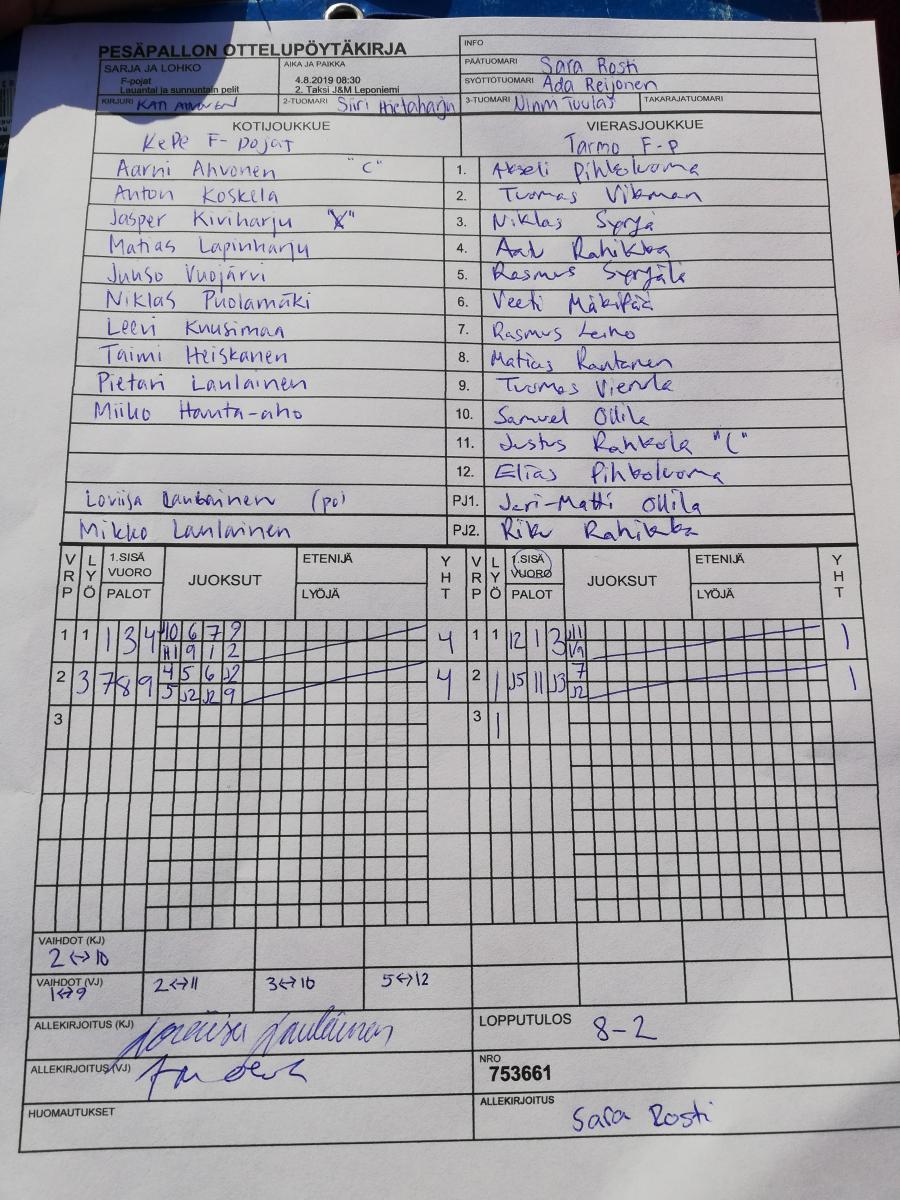 PESÄPALLON OTTELUPÖYTÄKIRJA
INFO
SARJA JA LOHKO
F-pojat
Lauantai ja sunnuntain pelit
AIKA JA PAIKKA
4.8.2019 08:30
2. Taksi J&M Leponiemi
PÄÄTUOMARI Sara Rosti
SYÖTTÖTUOMARI Ada Reijonen
KIRJURI KATI 2-TUOMARI Siiri Hietaharju 3-TUOMARI Ninni Tuulas TAKARAJATUOMARI
KOTIJOUKKUE VIERASJOUKKUE
KePe F-pojat Tarmo F-P
Aarni Ahvonen "C" 1. Akseli Pihkoluoma
Anton Koskela 2. Tuomas Vikman
Jasper Kiviharju 3. Niklas Syrjä
Matias Lapinharju 4. Rahikka
Juuso Vuojärvi 5. Rasmus Syrjälä
Niklas Puolamäki 6. Veeti Mäkipää
Leevi Kuusimaa 7. Rasmus Leino
Taimi Heiskanen 8. Matias Rautanen
Pietari Laulainen 9. Tuomas Vierula
Miiko Hauta-aho 10. Samuel Ollila
11. Justus Rahkola "C"
12. Elias Pihkoluoma
Loviisa Laulainen (po) PJ1. Jari-Matti Ollila
Mikko Laulainen PJ2. Riku Rahikka
VRP LYÖ 1.SISÄ VUORO PALOT JUOKSUT ETENIJÄ LYÖJÄ YHT VRP LYÖ 1.SISÄ VUORO PALOT JUOKSUT ETENIJÄ LYÖJÄ YHT
1 1 1 3 4 10 6 7 9 4 1 1 12 1 3 J11 1
9 1 2 V9
2 3 7 8 9 4 5 6 J2 4 2 1 J5 11 J3 7 1
5 J2 J2 9 J2
3 3 1
VAIHDOT (KJ)
2<->10
VAIHDOT (VJ)
1<->9 2<->11 3<->10 5<->12
ALLEKIRJOITUS (KJ) Loviisa Laulainen LOPPUTULOS 8-2
ALLEKIRJOITUS (VJ) NRO
753661
HUOMAUTUKSET ALLEKIRJOITUS
Sara Rosti